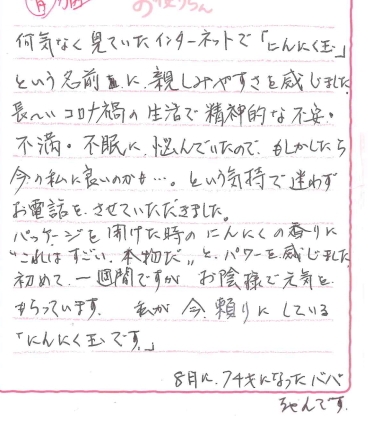 何気なく見ていたインターネットで「にんにく玉」
という名前に、親しみやすさを感じました。
長〜いコロナ禍の生活で精神的な不安・
不満・不眠に、悩んでいたので、もしかしたら
今の私に良いのかも…。という気持で迷わず
お電話を、させていただきました。
パッケージを開けた時のにんにくの香りに
“これはすごい、本物だ„と、パワーを感じました。
初めて、一週間ですが お陰様で元気を
もらっています。 私が今、頼りにしている
「にんにく玉です。」
8月に、74才になったババ
ちゃんです。